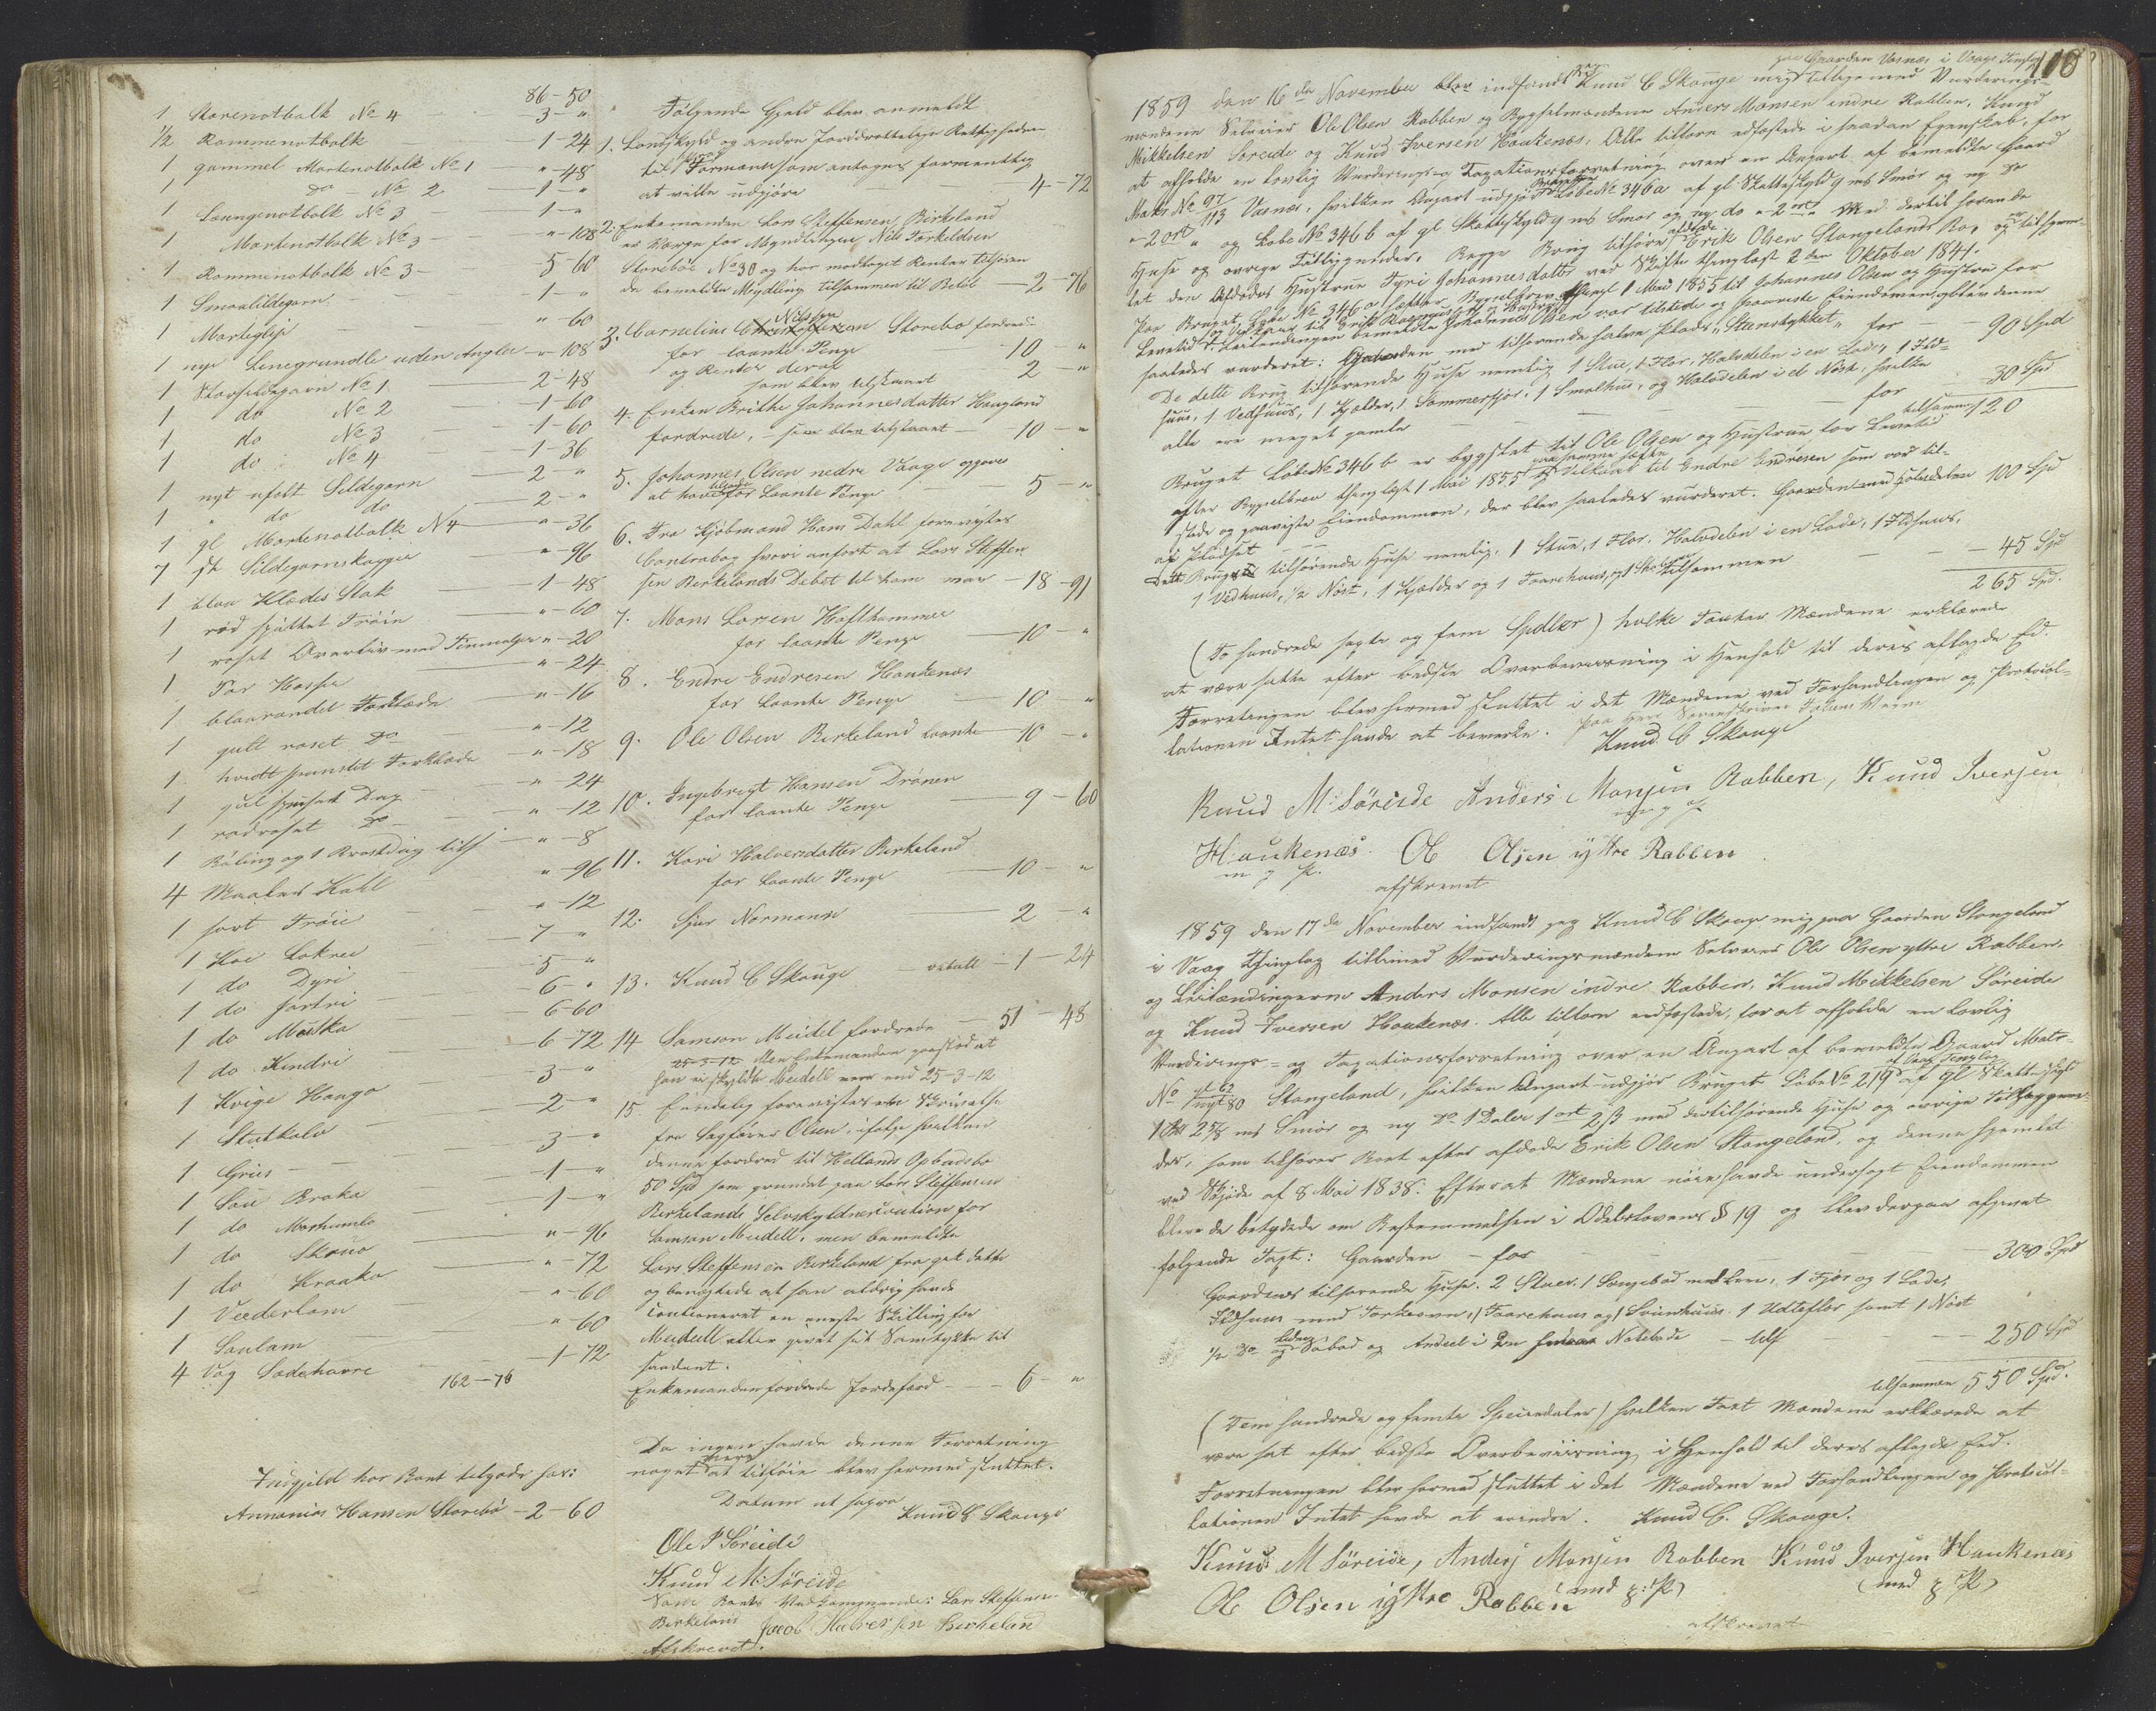 86-50
1 Marenotbolk No 4 3-"
1/2 Rammenotbolk 1-24
1 gammel Martenotbolk No 1 "-48
1 do - No 2 1-"
1 Laxengenotbolk No 3 1-"
1 Martenotbolk No 3 "-108
1 Rammenotbolk No 3 5-60
1 Smaasildegarn 1-"
1 Morteglip "-60
1 nye Senegrundle uden Angler "-108
1 Storsildegarn No 1 2-48
1 do No 2 1-60
1 do No 3 1-60
1 do No 4 1-36
1 nyt ufalt Sildegarn 2-"
1 " do do 2-"
1 gl Martenotbolk No 4 "-36
7 stk Sildegarnskagger "-96
1 blaa Klædes Stak 1-48
1 rød spættet Trøie "-60
1 roset Overliv med Tinmalger "-20
1 Par Hosser "-24
1 blaarandet Forklæde "-16
1 gult roset do "-12
1 hvidt prentet Forklæde "-18
1 gul Dug "-24
1 rødroset do "-12
1 Bæling og 1 Brystdug tils "-8
4 Maaler Kahl "-96
1 sort Trøie "-12
1 Koe Lokrei 7-"
1 do Dyri 5-"
1 do Fertri 6-"
1 do Mølka 6-60
1 do Kindri 6-72
1 Kvige Haugo 3-"
1 Stutkalv 2-"
1 Griis 3-"
1 Sau Broka 1-"
1 do Morhumla 1-"
1 do Skouo "-96
1 do Kraaka "-72
1 Væderlam "-60
1 Saulam "-60
4 Vog Sædehavre 1-72
162-76
Indgjeld har Boet tilgode hos:
Annanias Hansen Storebø - 2-60
Følgende Gjeld blev anmeldt
1. Landskyld og andre Jorddrotlige Rettigheder
til Formand som antoges formentlig
at ville udgjøre 4-72
2. Enkemanden Lars Steffensen Birkeland
er Værge for Myndlingen Nils Torkeldsen
Storebøe No 30 og har modtaget Renter tilhøren
de bemeldte Myndling tilsammen til Beløb 2-76
Nilssen
3. Cornelius Christoffersen Storebø fordrede
for laante Penge 10-"
og Renter deraf 2-"
som blev tilstaaet
4. Enken Brithe Johannesdatter Haugland
fordrede, - som blev tilstaaet 10-"
5. Johannes Olsen nedre Vaage opgaves
at have tilgode for laante Penge 5-"
6. Fra Kjøbmand Hans Dahl forevistes
Contrabog hvori anført at Lars Steffen
sen Birkelands Debet til ham var 18-91
7. Mons Larsen Hafthammer
for laante Penge 10-"
8. Endre Endresen Haukenæs
for laante Penge 10-"
9. Ole Olsen Birkeland laante 10-"
10. Ingebregt Hansen Drønen
for laante Penge 9-60
11. Kari Halvorsdatter Birkeland
for laante Penge 10-"
12. Sjur Normann 2-"
13. Knud C Skouge betalt 1-24
14 Samson Meidel fordrede 51-48
25-3-12 Men Enkemanden paastod at
han ei skyldte Meidell mere end 25-3-12
15. Endelig forevistes en Skrivelse
fra Sagfører Olsen, ifølge hvilken
denne fordred til Hellands Opbudsbo
50 Spd som grundet paa Lars Steffensen
Birkelands Selvskyldnercaution for
Samson Meidell, men bemeldte
Lars Steffensen Birkeland fragik dette
og benægtede at han aldrig havde
cautioneret en eneste Skilling for
Meidell eller givet sit Samtykke til
saadant.
Enkemanden fordrede Jordefærd 6-"
Da ingen havde denne Forretning
noget mere at tilføie blev hermed sluttet.
Datum ut supra
Knud C Skouge
Ole P Søreide
Knud M: Søreide
Som Boets Vedkommende: Lars Steffensen
Birkeland Jacob Halvorsen Birkeland
Afskrevet.
110
paa Gaarden Vasnæs i Vaags Tinglag
1859 den 16de November blev indfandt jeg Knud C Skouge mig tillige med Vurderings-
mændene Selveier Ole Olsen Rabben og Bygselmændene Anders Monsen indre Rabben, Knud
Mikkelsen Søreide og Knud Iversen Haukenæs. Alle tilforn edfæstede i saadan Egenskab, for
at afholde en lovlig Vurderings og Taxationsforretning over en Anpart af bemeldte Gaard
Matr No 97/113 Vasnæs, hvilken Anpart udgjør Brugene Løbe No 346a af gl Skatteskyld 9 mk Smør og ny do
"-2 ort " og Løbe No 346b af gl Skatteskyld 9 mk Smør og ny do "-2 ort " Med dertil hørende
Huse og øvrige Tilliggender. Begge Brug tilhører afdøde Erik Olsen Stangelands Bo, og er tilhjem-
let den Afdødes Hustrue Tyri Johannesdatter ved Skifte thinglæst 2den Oktober 1841.
Paa Bruget Løbe No 346a hefter Bygselbrev thingl 1 Mai 1855 til Johannes Olsen og Hustrue for
Levetid. Leilændingen bemeldte Johannes Olsen var tilstede og paaviste Eiendommen, og blev denne
saaledes vurderet: Gaarden med tilhørende halve Plads "Stænstykket" for 90 Spd
De dette Brug tilhørende Huse nemlig 1 Stue, 1 Flor, Halvdelen i en Lade, 1 Ild-
huus, 1 Vedhuus, 1 Kjelder, 1 Sommerfjør, 1 Smalhuus, og Halvdelen i et Nøst, hvilke
alle ere meget gamle for 30 Spd
tilsammen 120
Bruget Løbe No 346b er bygslet til Ole Olsen og Hustrue for Levetid
efter Bygselbrev thinglæst 1 Mai 1855 til Endre Endresen som var til-
stede og paaviste Eiendommen, der blev saaledes vurderet. Gaarden med Halvdelen 100 Spd
af Pladset
Dette Brugs tilhørende Huse nemlig, 1 Stue, 1 Flor, Halvdelen i en Lade, 1 Ildhuus,
1 Vedhuus, 1/2 Nøst, 1 Kjælder og 1 Faarehuus, tilsammen 45 Spd
265 Spd.
(To hundrede sexti og fem Spdler) hvilke Taxter Mændene erklærede
at være satte efter bedste Overbeviisning i Henhold til deres aflagde Ed.
Forretningen blev hermed sluttet i det Mændene ved Forhandlingen og Protocol-
lationen Intet havde at bemærke. paa Herr Sorenskriver Vegne
Knud C Skouge
Knud M: Søreide Anders Monsen Rabben, Knud Iversen
m p P
Haukenæs. Ole Olsen ÿttre Rabben
m p P.
afskrevet
1859 den 17de November indfandt jeg Knud C Skouge mig paa Gaarden Stangeland
i Vaag Thinglag tillimed Vurderingsmændene Selveier Ole Olsen yttre Rabben,
og Leilændingerne Anders Monsen indre Rabben, Knud Mikkelsen Søreide
og Knud Iversen Haukenæs. Alle tilforn edfæstede, for at afholde en lovlig
Vurderings- og Taxationsforretning over en Anpart af bemeldte Gaard Matr-
No gl 62/nyt 80 Stangeland, hvilken Anpart udgjør Bruget Løbe No 219 af Vaags Tinglag af gl Skatteskyld
1 2 5/8 mk Smør og ny do 1 Daler 1 ort 2 ß med dertilhørende Huse og øvrige Tilliggen-
der, som tilhører Boet efter afdøde Erik Olsen Stangeland, og denne hjemlet
ved Skjøde af 8 Mai 1838. Efterat Mændene nøie havde undersøgt Eiendommen
bleve de betydede om Bestemmelsen i Odelslovens § 19 og blev derpaa afgivet
følgende Taxt: Gaarden - for 300 Spd
Gaardens tilhørende Huse. 2 Stuer, 1 Sengebod med Lem, 1 Fjøs og 1 Lade,
Ildhuus med Torkeovn, 1 Faarehuus og 1 Sviinhuus, 1 Udteflor samt 1 Nøst
1/2 do og Søbod og Andeel i Notebode - tils 250 Spd
tilsammen 550 Spd.
(Fem hundrede og femti Speciedaler) hvilken Taxt Mændene erklærede at
være sat efter bedste Overbeviisning i Henhold til deres aflagde Ed.
Forretningen blev hermed sluttet i det Mændene ved Forhandlingen og Protocol-
lationen Intet havde at erindre. Knud C. Skouge.
Knud M Søreide, Anders Monsen Rabben Knud Iversen Haukenæs
Ole Olsen ÿttre Rabben med p: P) (med p P)
afskrevet